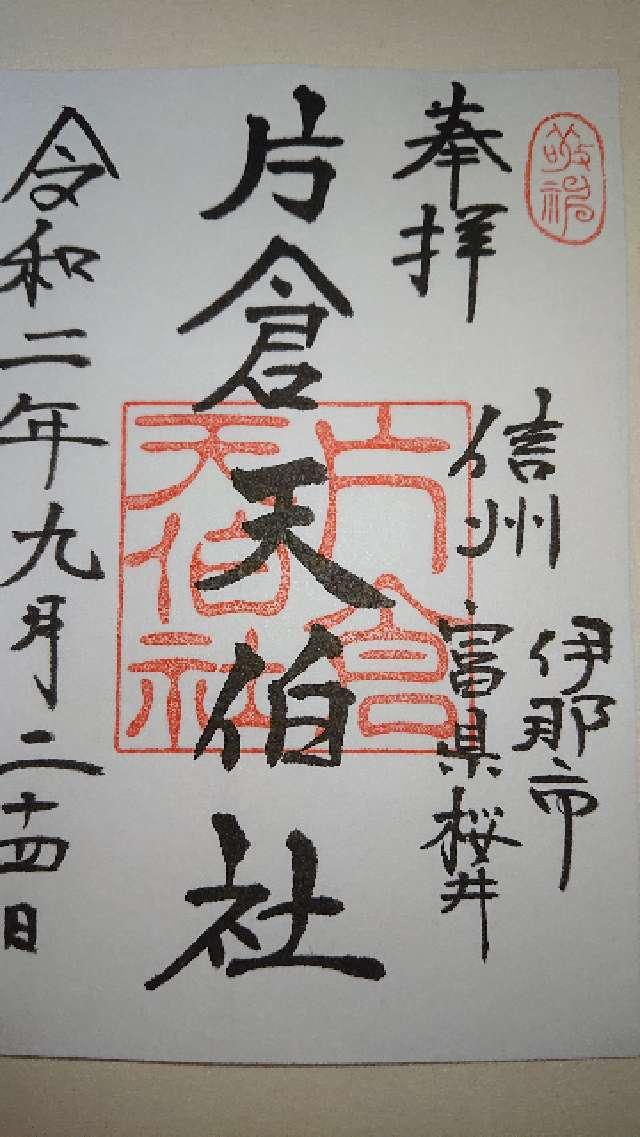 奉拝
信州
伊那市
富県桜井
片倉天伯社
片倉
天伯社
令和二年九月二十四日